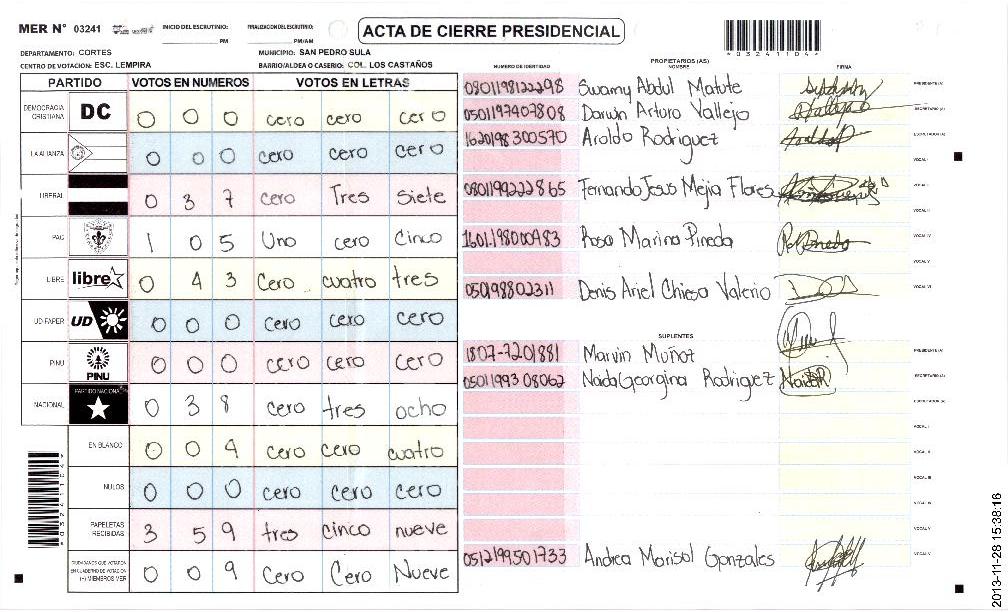 MER Nº 03241
INICIO DEL ESCRUTINIO: PM
FINALIZACION DEL ESCRUTINIO: PM/AM
ACTA DE CIERRE PRESIDENCIAL
03241104
DEPARTAMENTO: CORTES
MUNICIPIO: SAN PEDRO SULA
CENTRO DE VOTACION: ESC. LEMPIRA
BARRIO/ALDEA O CASERIO: COL. LOS CASTAÑOS
PARTIDO VOTOS EN NUMEROS VOTOS EN LETRAS
DEMOCRACIA CRISTIANA DC 0 0 0 cero cero cero
LA ALIANZA 0 0 0 cero cero cero
LIBERAL 0 3 7 cero Tres siete
PAC 1 0 5 Uno cero cinco
LIBRE libre 0 4 3 Cero cuatro tres
UD-FAPER UD 0 0 0 cero cero cero
PINU PINU 0 0 0 cero cero cero
NACIONAL PARTIDO NACIONAL 0 3 8 cero tres ocho
EN BLANCO 0 0 4 cero cero cuatro
NULOS 0 0 0 cero cero cero
PAPELETAS RECIBIDAS 3 5 9 tres cinco nueve
CIUDADANOS QUE VOTARON EN CUADERNO DE VOTACION (+) MIEMBROS MER 0 0 9 Cero Cero Nueve
NUMERO DE IDENTIDAD PROPIETARIOS (AS) NOMBRE FIRMA
0801198122298 Swamy Abdul Matute PRESIDENTE (A)
0501197407808 Darwin Arturo Vallejo SECRETARIO (A)
1620198300570 Aroldo Rodriguez ESCRUTADOR (A)
VOCAL I
0801199222865 Fernando Jesus Mejia Flores VOCAL II
VOCAL III
1601198000483 Rosa Marina Pineda VOCAL IV
VOCAL V
050198802311 Denis Ariel Chiesa Valerio VOCAL VI
SUPLENTES
1807-7201881 Marvin Muñoz PRESIDENTE (A)
0501199308062 Naida Georgina Rodriguez SECRETARIO (A)
ESCRUTADOR (A)
VOCAL I
VOCAL II
VOCAL III
VOCAL IV
VOCAL V
0512199501733 Andrea Marisol Gonzales
2013-11-28 15:38:16